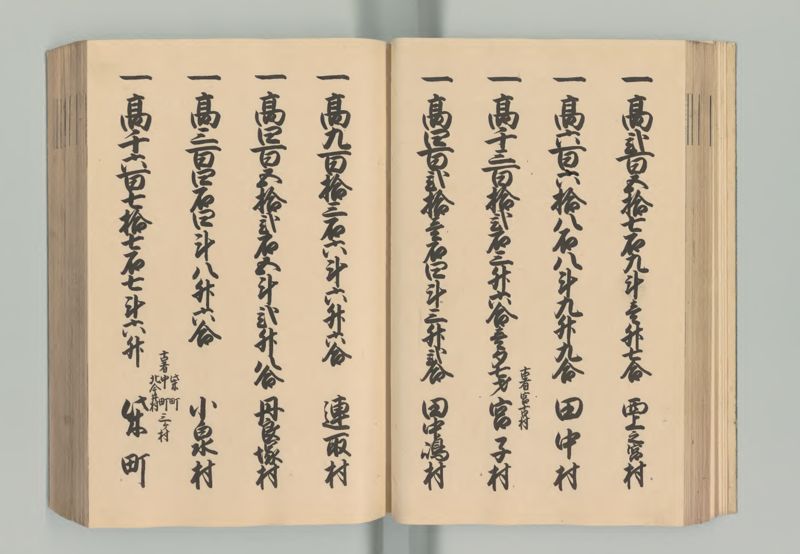 一高弐百五拾七石九斗壱升七合 西上之宮村
一高六百六拾八石八斗九升九合 田中村
一高千三百拾弐石三升六合壱夕七才 古者宮古村 宮子村
一高四百弐拾壱石四斗三升弐合 田中嶋村
一高九百拾三石六斗六升六合 連取村
一高四百五拾弐石五斗弐升八合 丹良塚村
一高三百四石四斗八升六合 小泉村
一高千六百七拾七石七斗六升 古者 柴町 中町 北今井村 三ヶ村 柴町